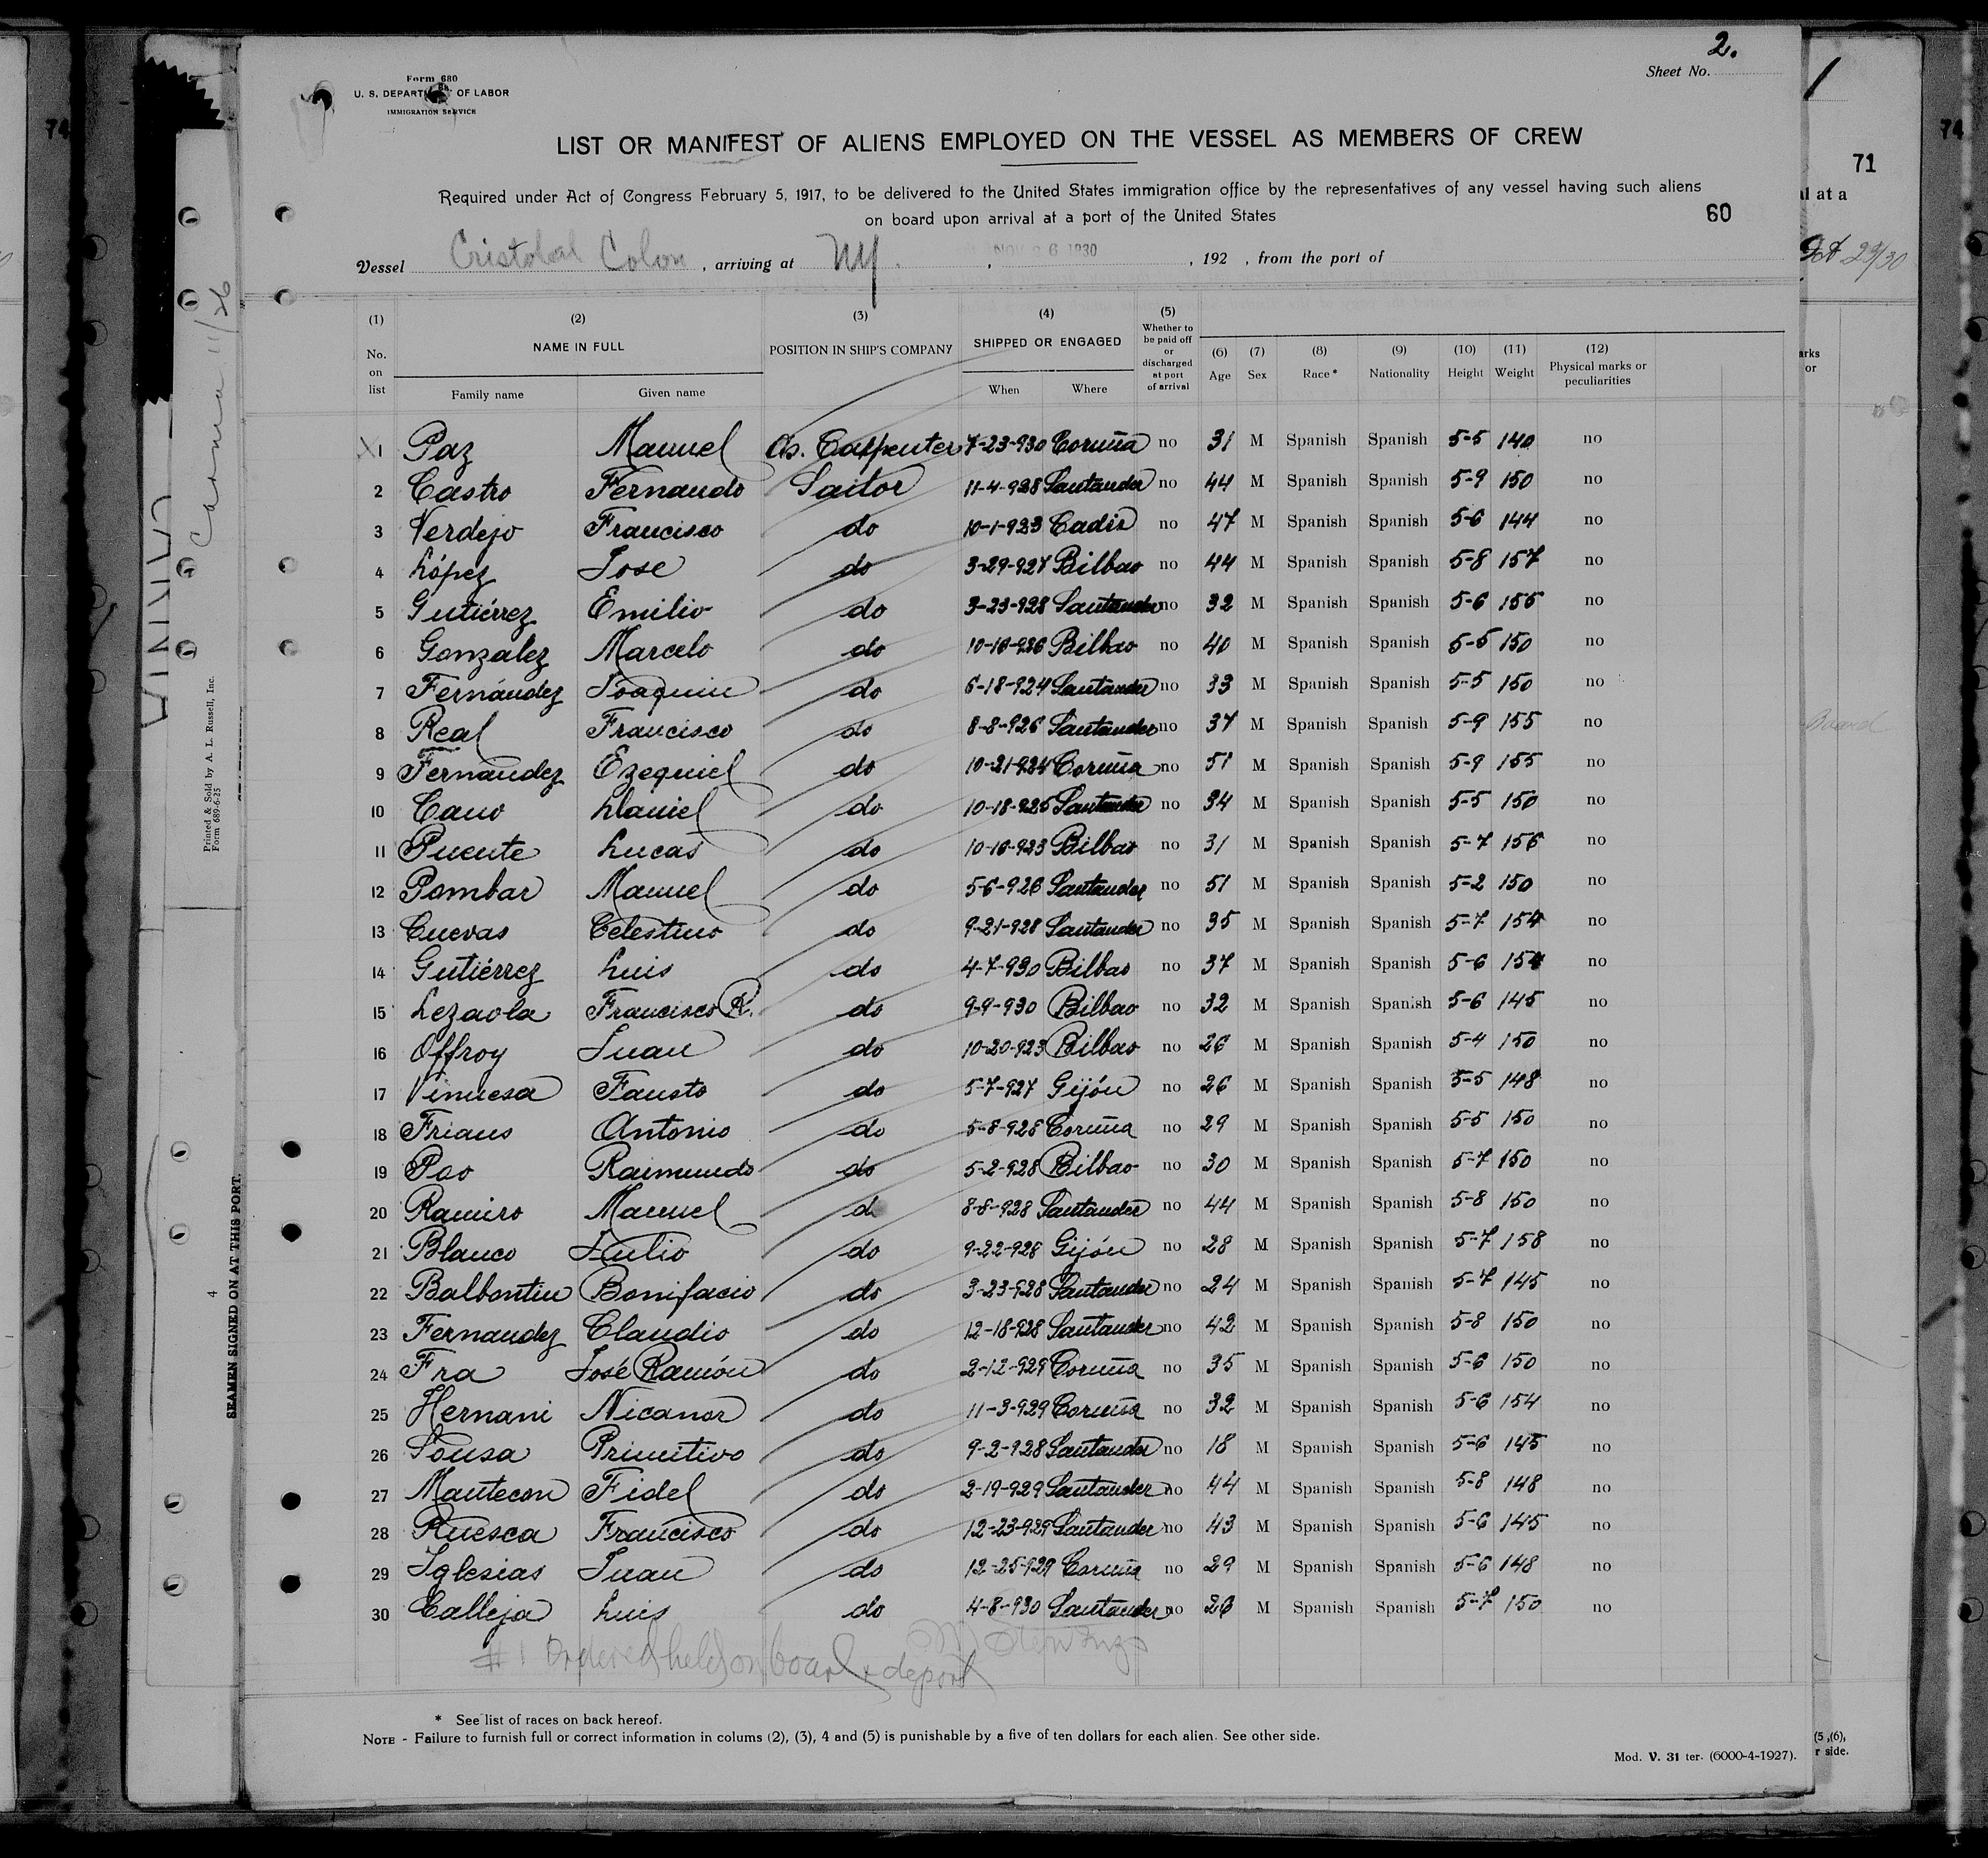 2.
Sheet No.
Form 680
U. S. DEPARTMENT OF LABOR
IMMIGRATION SERVICE
LIST OR MANIFEST OF ALIENS EMPLOYED ON THE VESSEL AS MEMBERS OF CREW
Required under Act of Congress February 5, 1917, to be delivered to the United States immigration office by the representatives of any vessel having such aliens
on board upon arrival at a port of the United States
60
Vessel Cristobal Colon, arriving at NY. , NOV 26 1930, 192 , from the port of
(1) No. on list (2) NAME IN FULL Family name Given name (3) POSITION IN SHIP'S COMPANY (4) SHIPPED OR ENGAGED When Where (5) Whether to be paid off or discharged at port of arrival (6) Age (7) Sex (8) Race* (9) Nationality (10) Height (11) Weight (12) Physical marks or peculiarities
X 1 Paz Manuel As. Carpenter 7-23-930 Coruña no 31 M Spanish Spanish 5-5 140 no
2 Castro Fernando Sailor 11-4-928 Santander no 44 M Spanish Spanish 5-9 150 no
3 Verdejo Francisco do 10-1-923 Cadiz no 47 M Spanish Spanish 5-6 144 no
4 López Jose do 3-29-927 Bilbao no 44 M Spanish Spanish 5-8 157 no
5 Gutiérrez Emilio do 3-23-928 Santander no 32 M Spanish Spanish 5-6 155 no
6 Gonzalez Marcelo do 10-16-926 Bilbao no 40 M Spanish Spanish 5-5 150 no
7 Fernández Joaquin do 6-18-924 Santander no 33 M Spanish Spanish 5-5 150 no
8 Real Francisco do 8-8-926 Santander no 37 M Spanish Spanish 5-9 155 no
9 Fernandez Ezequiel do 10-21-924 Coruña no 51 M Spanish Spanish 5-9 155 no
10 Cano Daniel do 10-18-925 Santander no 34 M Spanish Spanish 5-5 150 no
11 Puente Lucas do 10-16-923 Bilbao no 31 M Spanish Spanish 5-7 156 no
12 Pombar Manuel do 5-6-926 Santander no 51 M Spanish Spanish 5-2 150 no
13 Cuevas Celestino do 9-21-928 Santander no 35 M Spanish Spanish 5-7 154 no
14 Gutiérrez Luis do 4-7-930 Bilbao no 37 M Spanish Spanish 5-6 154 no
15 Lezaola Francisco R. do 9-9-930 Bilbao no 32 M Spanish Spanish 5-6 145 no
16 Offroy Juan do 10-20-923 Bilbao no 26 M Spanish Spanish 5-4 150 no
17 Vinuesa Fausto do 5-7-927 Gijón no 26 M Spanish Spanish 5-5 148 no
18 Frians Antonio do 5-8-928 Coruña no 29 M Spanish Spanish 5-5 150 no
19 Poo Raimundo do 5-2-928 Bilbao no 30 M Spanish Spanish 5-7 150 no
20 Ramiro Manuel do 8-8-928 Santander no 44 M Spanish Spanish 5-8 150 no
21 Blanco Julio do 9-22-928 Gijón no 28 M Spanish Spanish 5-7 158 no
22 Balbontin Bonifacio do 3-23-928 Santander no 24 M Spanish Spanish 5-7 145 no
23 Fernandez Claudio do 12-18-928 Santander no 42 M Spanish Spanish 5-8 150 no
24 Fra José Ramón do 2-12-929 Coruña no 35 M Spanish Spanish 5-6 150 no
25 Hernani Nicanor do 11-3-929 Coruña no 32 M Spanish Spanish 5-6 154 no
26 Sousa Primitivo do 9-2-928 Santander no 18 M Spanish Spanish 5-6 145 no
27 Mantecon Fidel do 2-19-929 Santander no 44 M Spanish Spanish 5-8 148 no
28 Ruesca Francisco do 12-23-929 Santander no 43 M Spanish Spanish 5-6 145 no
29 Iglesias Juan do 12-25-929 Coruña no 29 M Spanish Spanish 5-6 148 no
30 Calleja Luis do 4-8-930 Santander no 26 M Spanish Spanish 5-7 150 no
# 1 Ordered held on board & deport
* See list of races on back hereof.
NOTE - Failure to furnish full or correct information in colums (2), (3), 4 and (5) is punishable by a five of ten dollars for each alien. See other side.
Mod. V. 31 ter. (6000-4-1927).
74
Carmia 11/26
Printed & Sold by A. L. Russell, Inc.
Form 689-6-25
4
SEAMEN SIGNED ON AT THIS PORT.
1
71
al at a
Oct 23/30
arks
or
Board
(5 ,(6),
r side.
74